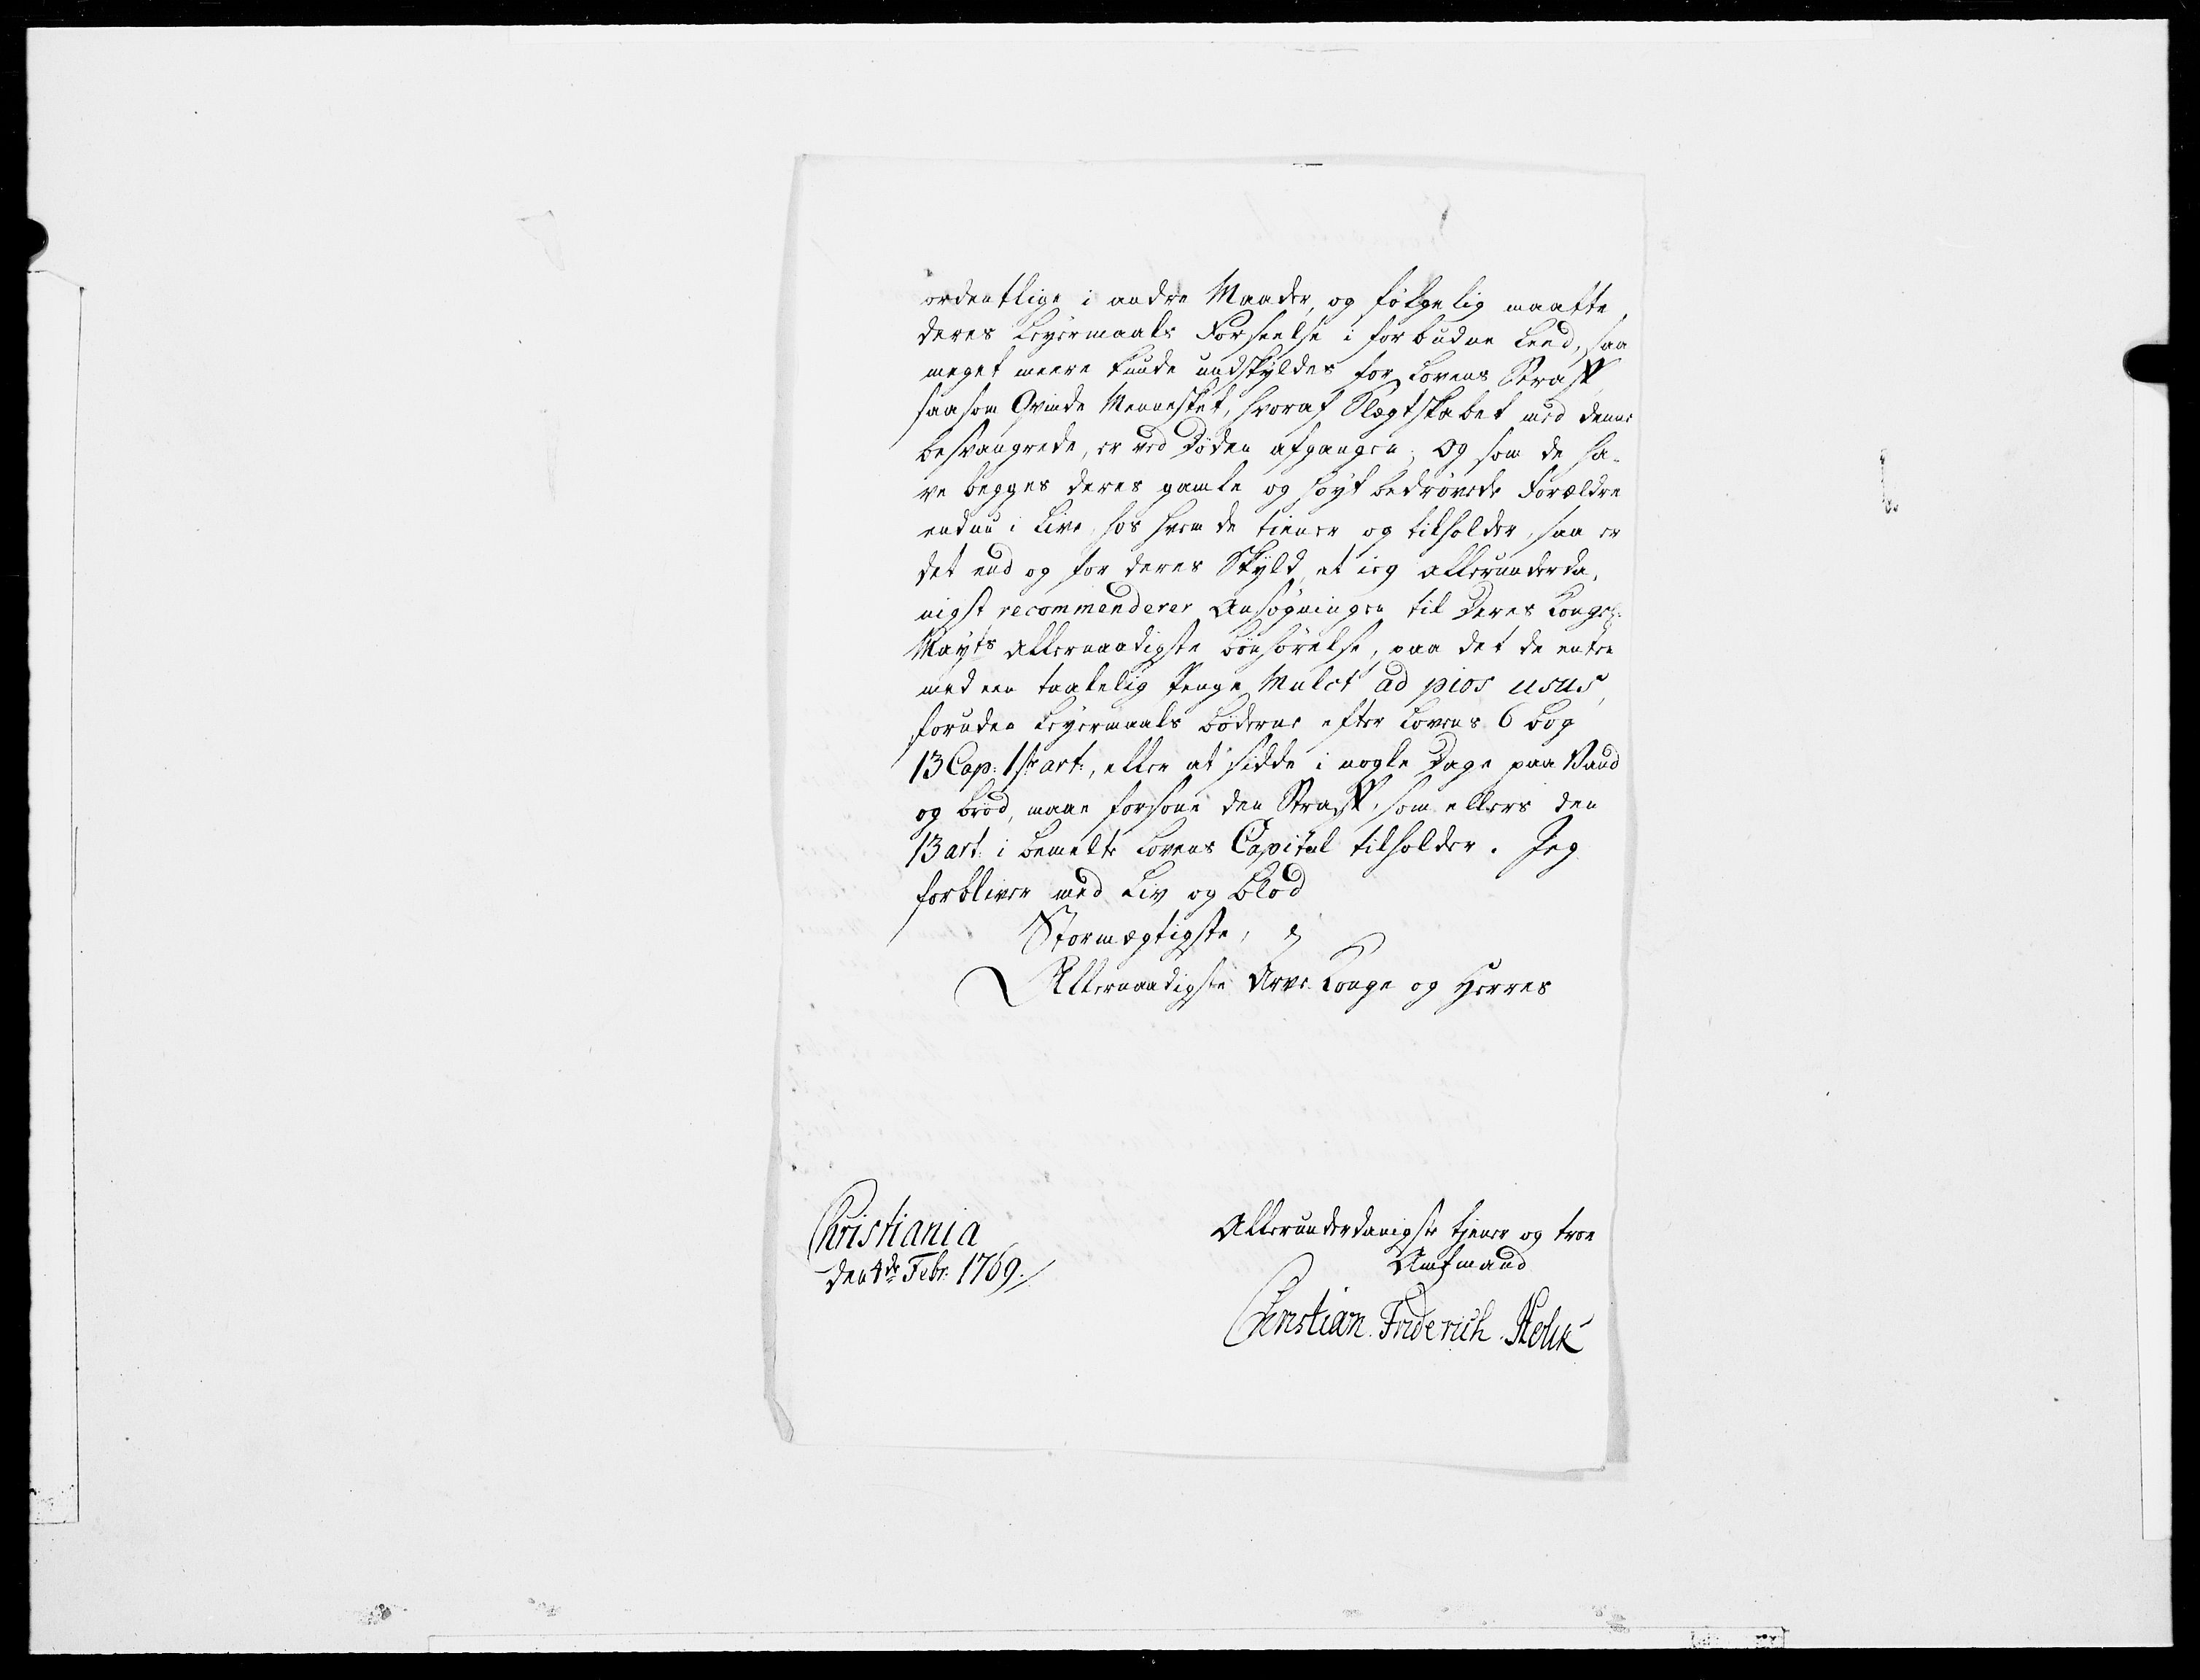 ordentlige i andre Maader, og følgelig maatte
deres Leyermaals Forseelse i forbudne Leed, saa
meget meere kunde undskyldes for Lovens Straff,
saasom Qvinde Mennesket, hvoraf Slægtskabet med denne
besvangrede, er ved Døden afgangen; Og som de ha-
ve begges deres gamle og høyt bedrøvede Forældre
endnu i Live, hos hvem de tiener og tilholder, saa er
det end og for deres Skyld, at ieg allerunderda-
nigst recommenderer Ansøgningen til Deres Kongel:
Mayts allernaadigste bønhørelse, paa det de enten
med een taalelig Penge Mulct ad pios usus,
foruden Leyermaals bøderne efter Lovens 6 bog
13 Cap: 1ste art:, eller at sidde i nogle Dage paa Vand
og brød, maae forsone den Straff, som ellers den
13 art: i bemelte Lovens Capitul tilholder. Jeg
forbliver med Liv og blod
Stormægtigste,
Allernaadigste Arve Konge og Herres
Christiania
den 4de Febr: 1769./
Allerunderdanigste tjener og troe
Amtmand
Christian Friderich Holck